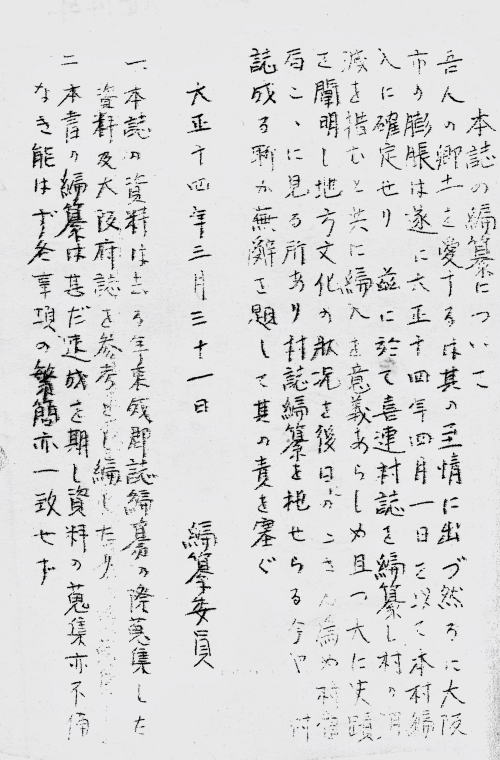 本誌の編纂について
吾人の郷土を愛するは其の至情に出づ然るに大阪
市の膨脹は遂に大正十四年四月一日を以て本村編
入に確定せり 茲に於て喜連村誌を編纂し村の消
滅を惜むと共に編入を意義あらしめ且つ大に史蹟
を闡明し地方文化の状況を後日に のこさん為め村当
局こゝに見る所あり村誌編纂を托せらる今や 村
誌成る聊か蕪辞を題して其の責を塞ぐ
大正十四年三月三十一日
編纂委員
一、本誌の資料は去る年東成郡誌編纂の際蒐集した
資料及大阪府誌を参考とし編したり
二 本書の編纂は甚だ速成を期し資料の蒐集亦不備
なき能はず各事項の繁簡亦一致せず